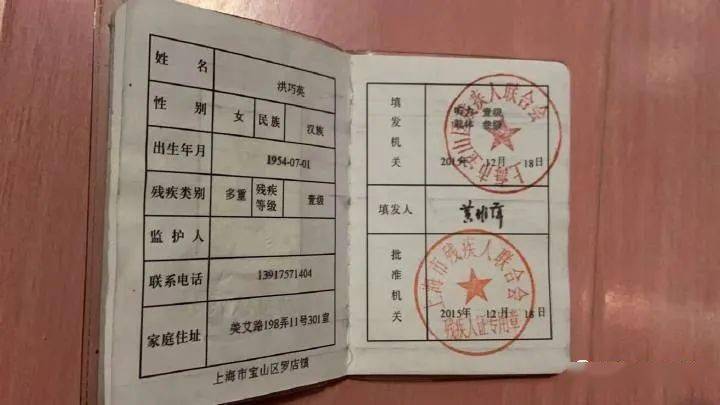 姓 名 洪巧英
性 别 女 民族 汉族
出生年月 1954-07-01
残疾类别 多重 残疾等级 壹级
监护人
联系电话 13917571404
家庭住址 美艾路198弄11号301室
上海市宝山区罗店镇
填发机关
上海市宝山区残疾人联合会
听力 壹级
肢体 叁级
2015年 12月 18日
填发人
批准机关
上海市残疾人联合会
残疾人证专用章
2015年 12月 18日